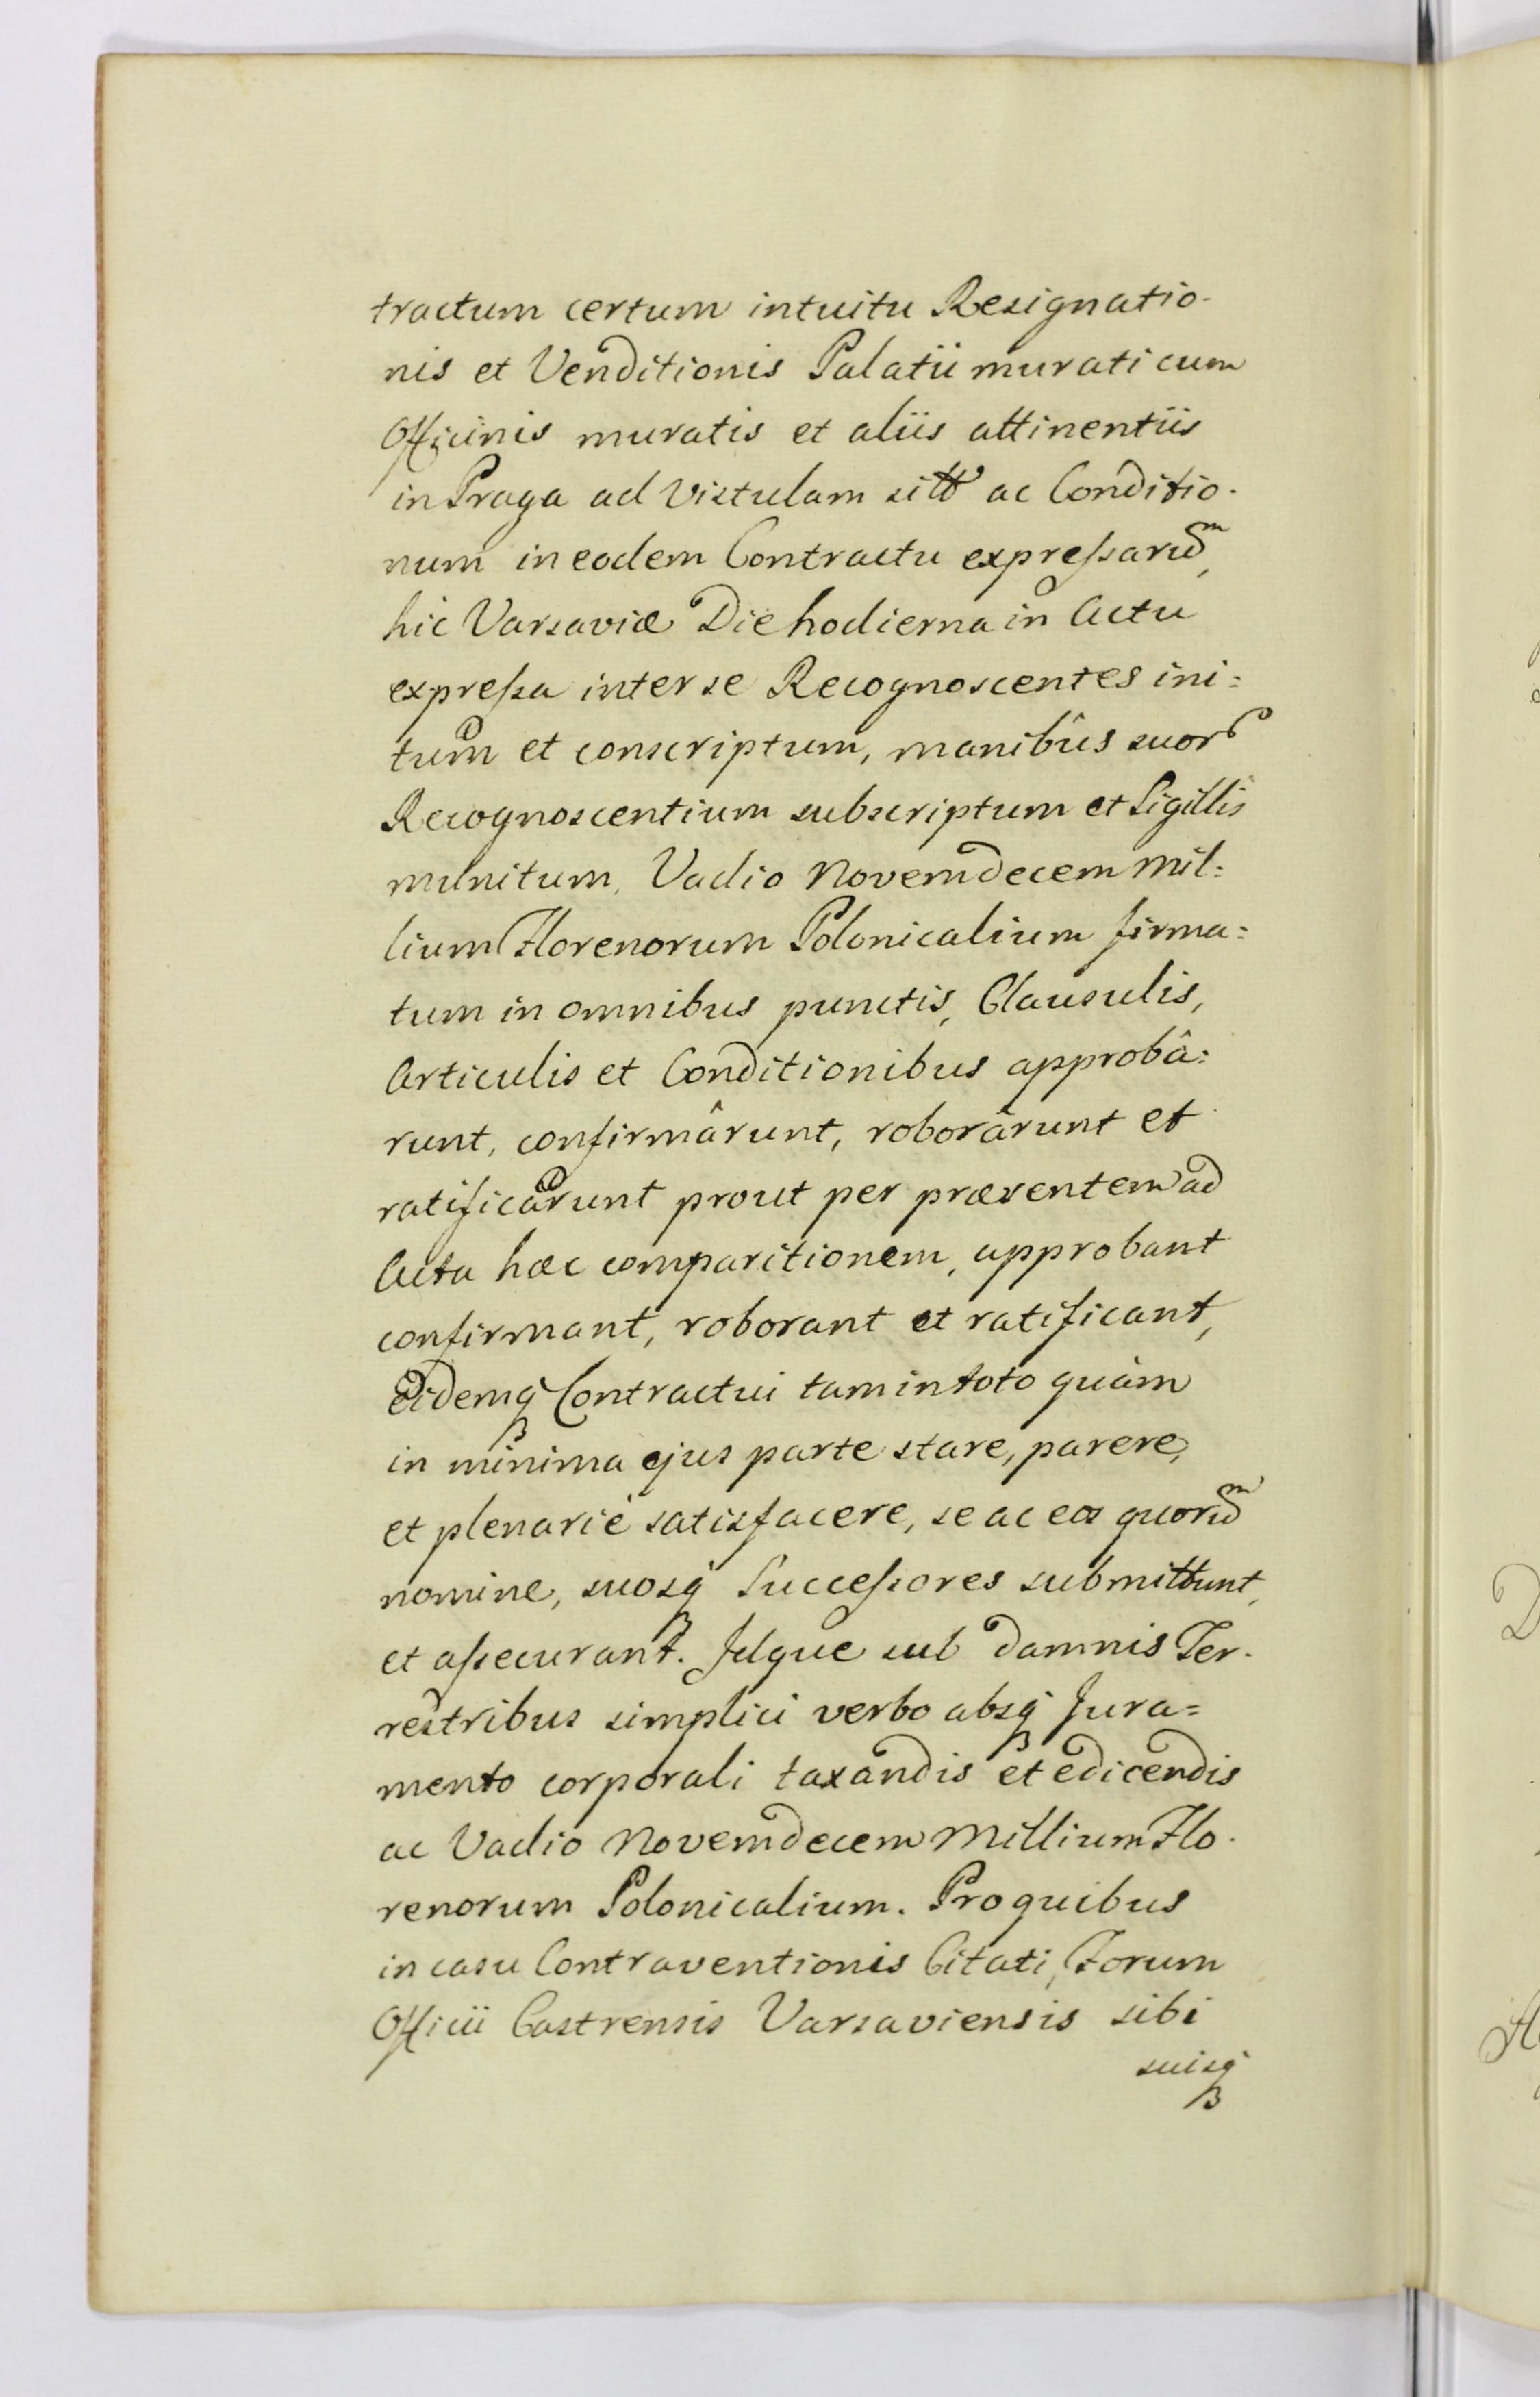 tractum certum intuitu Resignatio-
nis et Venditionis Palatii murati cum
Officinis muratis et aliis attinentiis
in Praga ad Vistulam sitt ac Conditio-
num in eodem Contractu expreſsarũm,
hic Varsaviæ Die hodierna in Actu
expreſsa inter se Recognoscentes ini=
tum et conscriptum, manibûs suor
Recognoscentium subscriptum et Sigillis
munitum, Vadio Novemdecem Mil=
lium Florenorum Polonicalium firma=
tum in omnibus punctis, Clausulis,
Articulis et Conditionibus approbâ=
runt, confirmârunt, roborârunt et
ratificârunt prout per præsentem ad
Acta hæc comparitionem, approbant
confirmant, roborant et ratificant,
Eidemq́ Contractui tam in toto quàm
in minima ejus parte stare, parere,
et plenariè satisfacere, se ac eos quorũm
nomine, suosq́ Succeſsores submittunt,
et aſsecurant. Idque sub damnis Ter-
restribus simplici verbo absq́ Jura=
mento corporali taxandis et edicendis
ac Vadio Novemdecem Millium Flo-
renorum Polonicalium. Pro quibus
in casu Contraventionis Citati, Forum
Officii Castrensis Varsaviensis sibi
suisq́